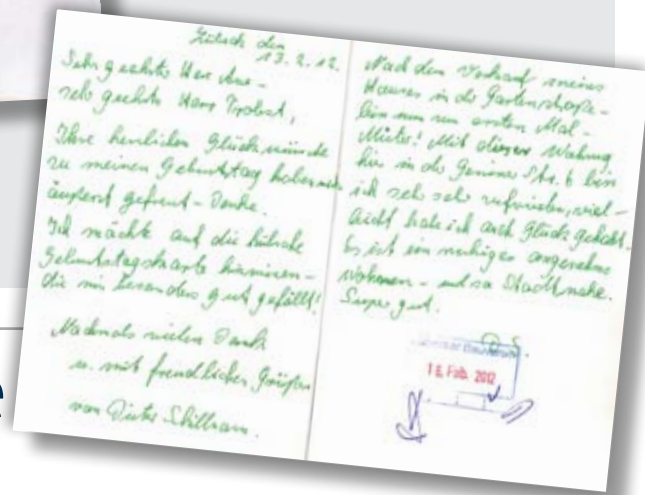 Jülich den
13. 2. 12.
Sehr geehrter Herr
sehr geehrter Herr Probst,
Ihre herzlichen Glückwünsche
zu meinem Geburtstag haben mich
äußerst gefreut - Danke.
Ich möchte auf die hübsche
Geburtstagskarte hinweisen -
die mir besonders gut gefällt!
Nochmals vielen Dank
u. mit freundlichen Grüßen
von Dieter
Nach dem Verkauf meines
Hauses in der Gartenstraße -
bin nun zum ersten Mal -
Mieter! Mit dieser Wohnung
hier in der Str. 6 bin
ich sehr sehr zufrieden, viel-
leicht habe ich auch Glück gehabt.
Es ist ein ruhiges angenehmes
wohnen - und so Stadtnahe.
Super gut.
D. S.
16. Feb. 2012
e